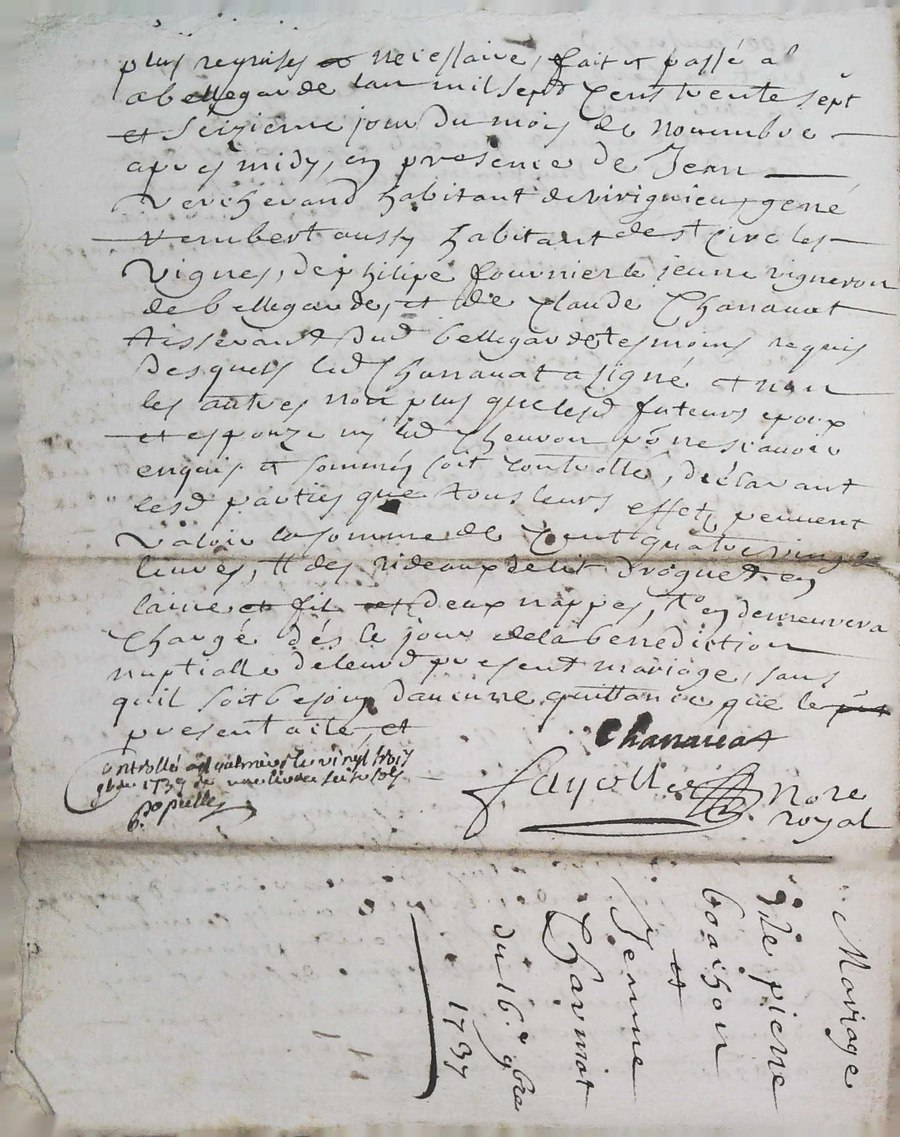 plus requises et necessaire, fait et passé a
abellegarde lan mil sept Cens trente sept
et seizieme jour du mois de novembre
apres midy, en presence de Jean
Verchevand habitant de Virignieu, gené
Vembert aussy habitant de st Circ les
Vignes, de philipe fournier le jeune vigneron
de bellegarde, et de Claude Chanauat
tisserand dud bellegarde tesmoins requis
Desquels led Chanauat a signé et non
les autres non plus que lesd futeurs epoux
et espouze ny led pr ne scavoir
enquis et sommés soit controllé, declarant
lesd parties que tous leurs effets peuvent
valoir la somme de Cent quatre vingt
livres, des rideaux de lit droguet en
laine et fil et deux nappes, en demeurera
Chargé dés le jour de la benediction
nuptialle de leurd present mariage, sans
quil soit besoin daucune quittance que le
present acte, et
Chanauat
Controllé le vingt trois
9bre 1737
Nore
royal
Mariage
De pierre
et
Jeanne
du 16e 9bre
1737